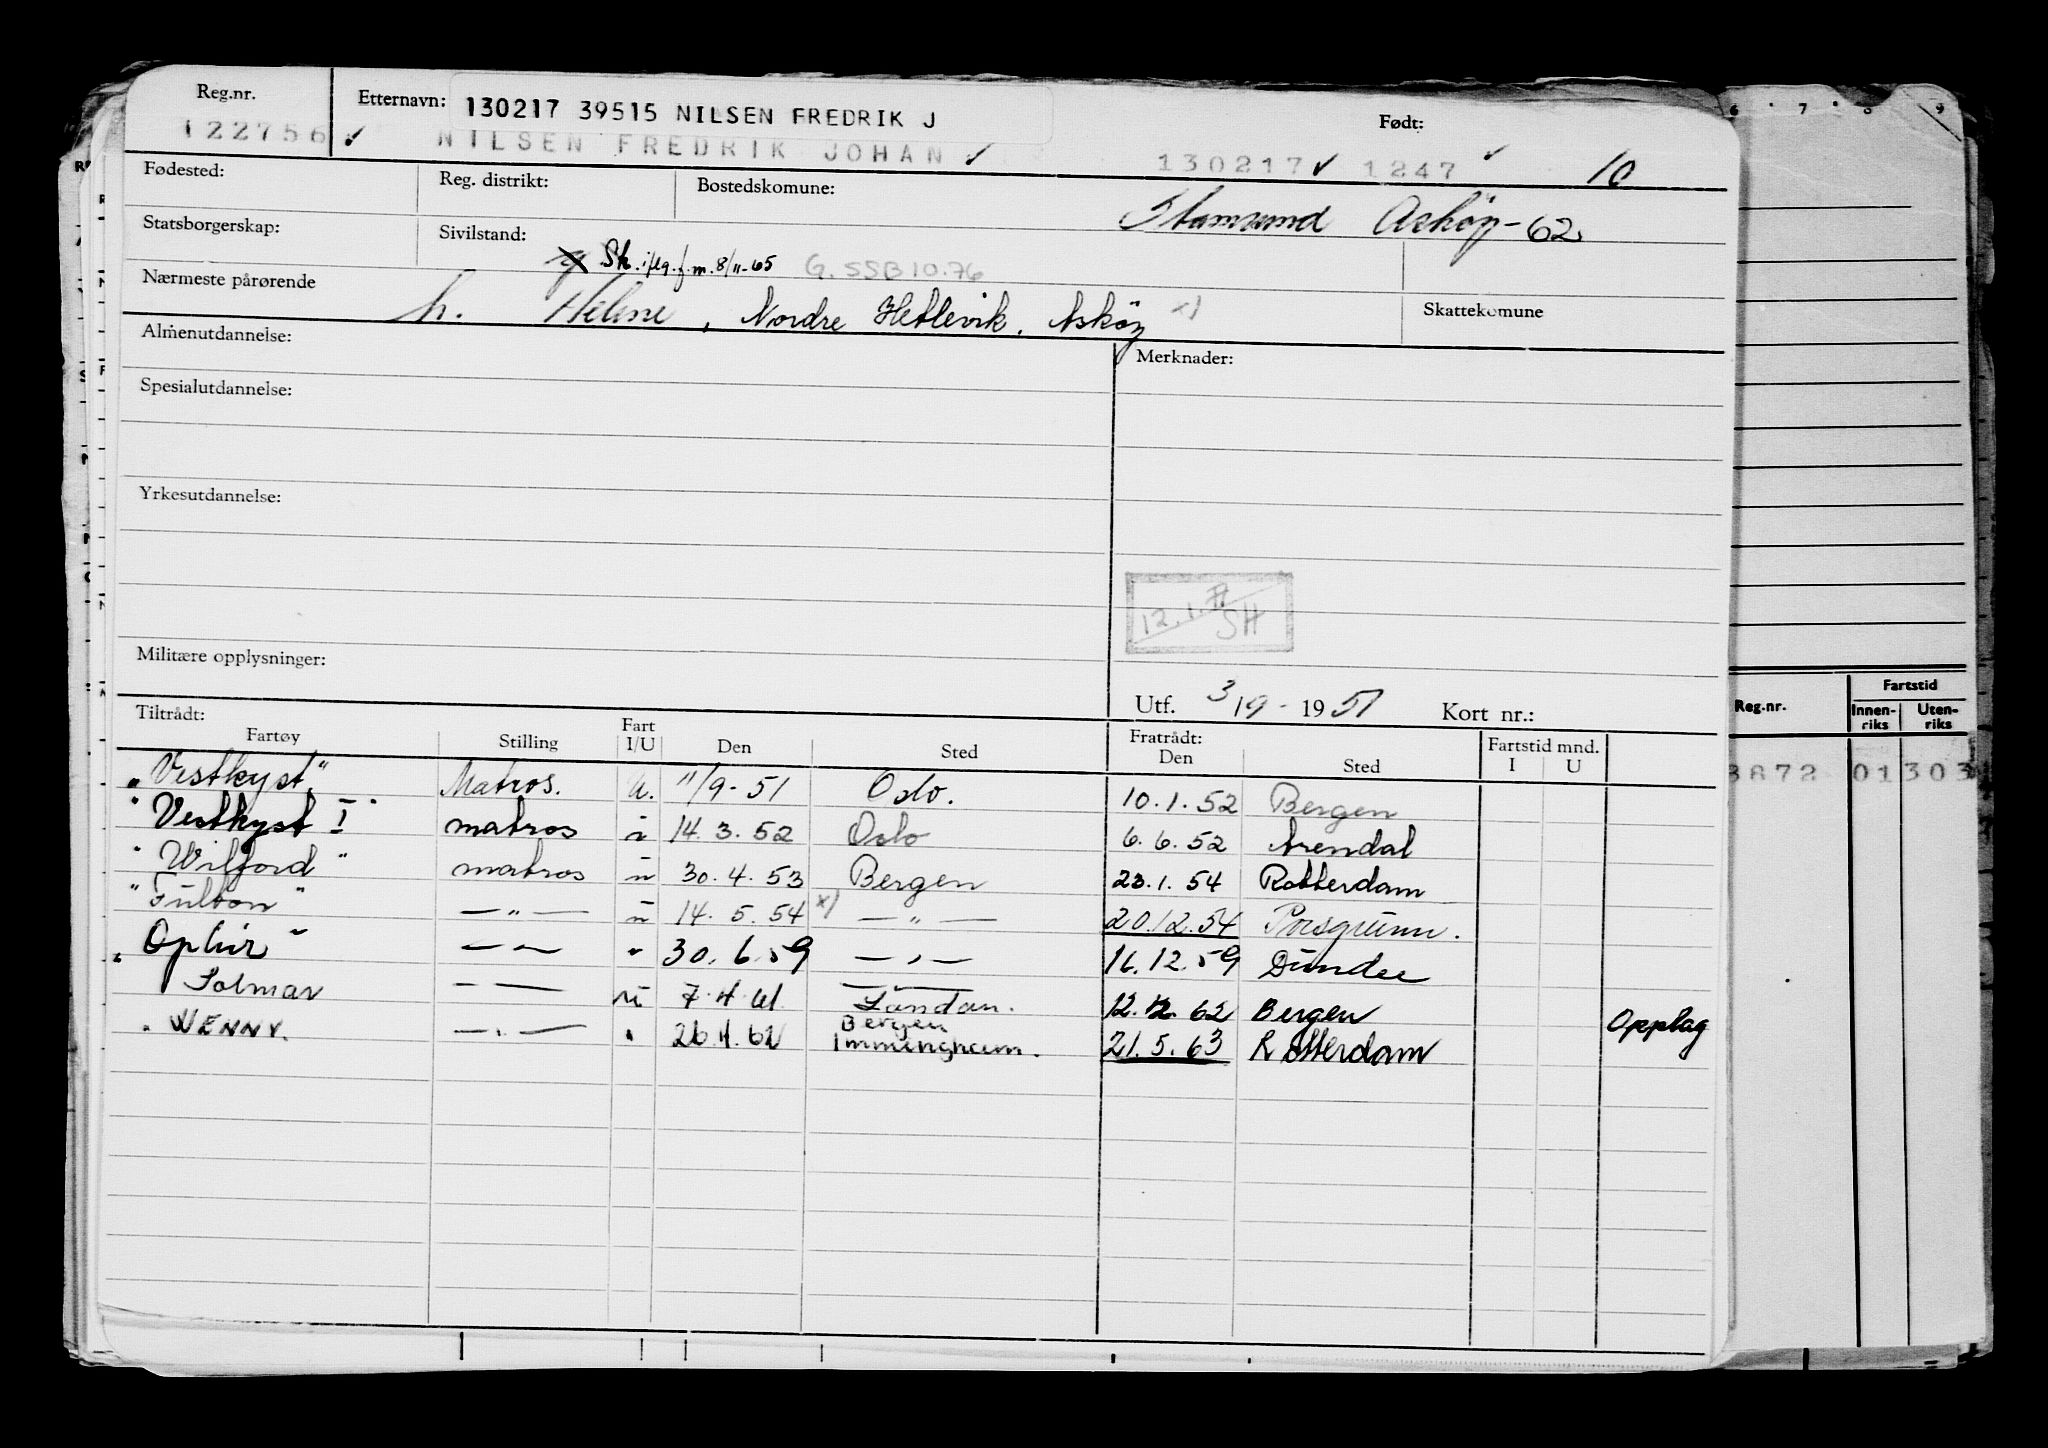 Reg.nr. Etternavn: 130217 39515 NILSEN FREDRIK J Født:
122756 ✓ NILSEN FREDRIK JOHAN ✓ 130217 ✓ 1247 ✓ 10
Fødested: Reg. distrikt: Bostedskomune: Stamsund Asköy - 62
Statsborgerskap: Sivilstand: Sk. i flg. f.m. 8/11-65 G. SSB 10.76
Nærmeste pårørende h. Helene, Nordre Hetlevik, Asköy x) Skattekomune
Almenutdannelse: Merknader:
Spesialutdannelse:
Yrkesutdannelse:
12.1.77 SH
Militære opplysninger:
Utf. 3/9 - 1951 Kort nr.:
Tiltrådt: Fratrådt: Fartstid mnd.
Fartøy Stilling Fart I/U Den Sted Den Sted I U
"Vestkyst" Matros. u. 11/9-51 Oslo. 10.1.52 Bergen
"Vestkyst I" matros u 14.3.52 Oslo 6.6.52 Arendal
"Wilford" matros u 30.4.53 Bergen 23.1.54 Rotterdam
"Fulton" — " — u 14.5.54 x) — " — 20.12.54 Porsgrunn.
"Ophir" — " — " 30.6.59 — " — 16.12.59 Dundee
Solmar — " — u 7.4.61 London. 12.2.62 Bergen Opplag
" WENNY. — " — " 26.4.62 Bergen Immingham. 21.5.63 Rotterdam
6 7 8 9
Fartstid
Reg.nr. Innen-riks Uten-riks
3872 01 303